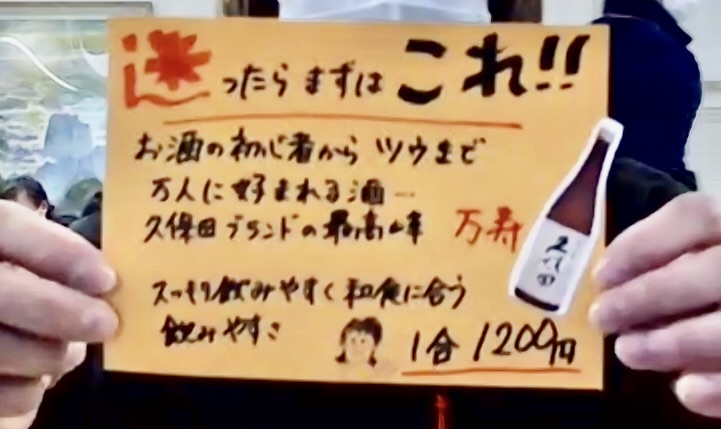 迷ったらまずはこれ!!
お酒の初心者からツウまで
万人に好まれる酒…
久保田ブランドの最高峰 万寿
久保田
スッキリ飲みやすく和食に合う
飲みやすさ
1合 1200円